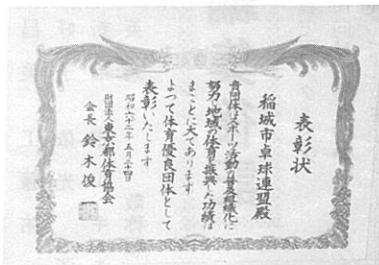 表彰状
稲城市卓球連盟殿
貴団体はスポーツ活動の普及組織化に
努力地域の体育の振興の功績は
まことに大であります
よつて体育優良団体として
表彰いたします
昭和六十三年五月二十四日
財団法人東京都体育協会
会長 鈴木俊一